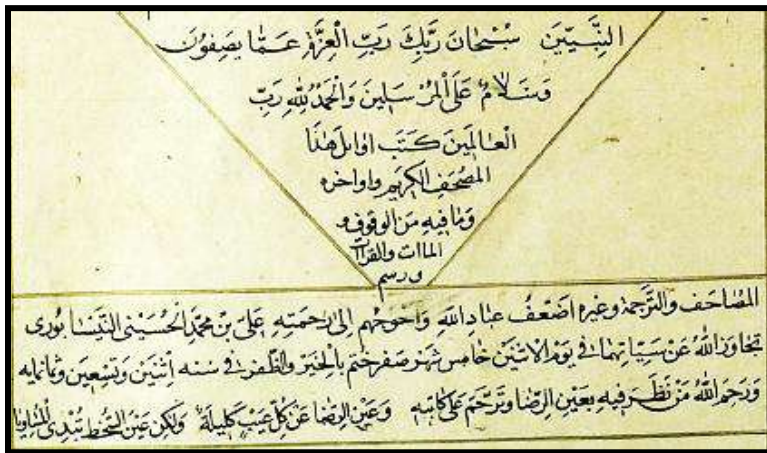 النَّبِيِّينَ سُبْحَانَ رَبِّكَ رَبِّ الْعِزَّةِ عَمَّا يَصِفُونَ
وَسَلَامٌ عَلَى الْمُرْسَلِينَ وَالْحَمْدُ لِلَّهِ رَبِّ
الْعَالَمِينَ كَتَبَ اوايل هٰذَا
المُصْحَفِ الكَرِيمِ واواخره
وَمَا فِيهِ مِنَ الوقوف و
الماات والقراات
ورسم
المصَاحف والتَّرجمة وغيره اضْعَفُ عبَادِ اللهِ وَاحْوَجُهم اِلىٰ رَحمَتِهِ عَلىّ بن محمّدِ الْحُسَيْنى النيسَابُورى
تجَاوزَ اللهُ عَنْ سيّاتِهمَا فى يَوْمِ الاثنَيْنِ خَامِس شَهرِ صَفَر خُتِمَ بِالْخَيْرِ وَالظَّفَرِ فى سَنه اِثنَيْنَ وَتِسْعِينَ وَثمانمايه
وَرَحِمَ اللهُ مَنْ نَظَرَ فيهِ بِعَيْنِ الرِّضَا وَتَرَحَّمَ عَلىٰ كاتِبِهِ وَعَينُ الرِّضا عَنْ كُلِّ عَيْبٍ كَلِيلَةٌ وَلٰكِن عَيْنَ السُّخطِ تُبْدِى الْمَسَاوِيَا